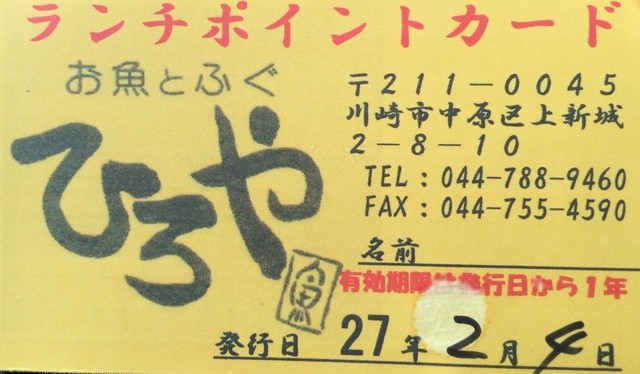 ランチポイントカード
お魚とふぐ
ひろや
魚
〒211-0045
川崎市中原区上新城
2-8-10
TEL:044-788-9460
FAX:044-755-4590
名前
有効期限は発行日から1年
発行日 27年2月4日